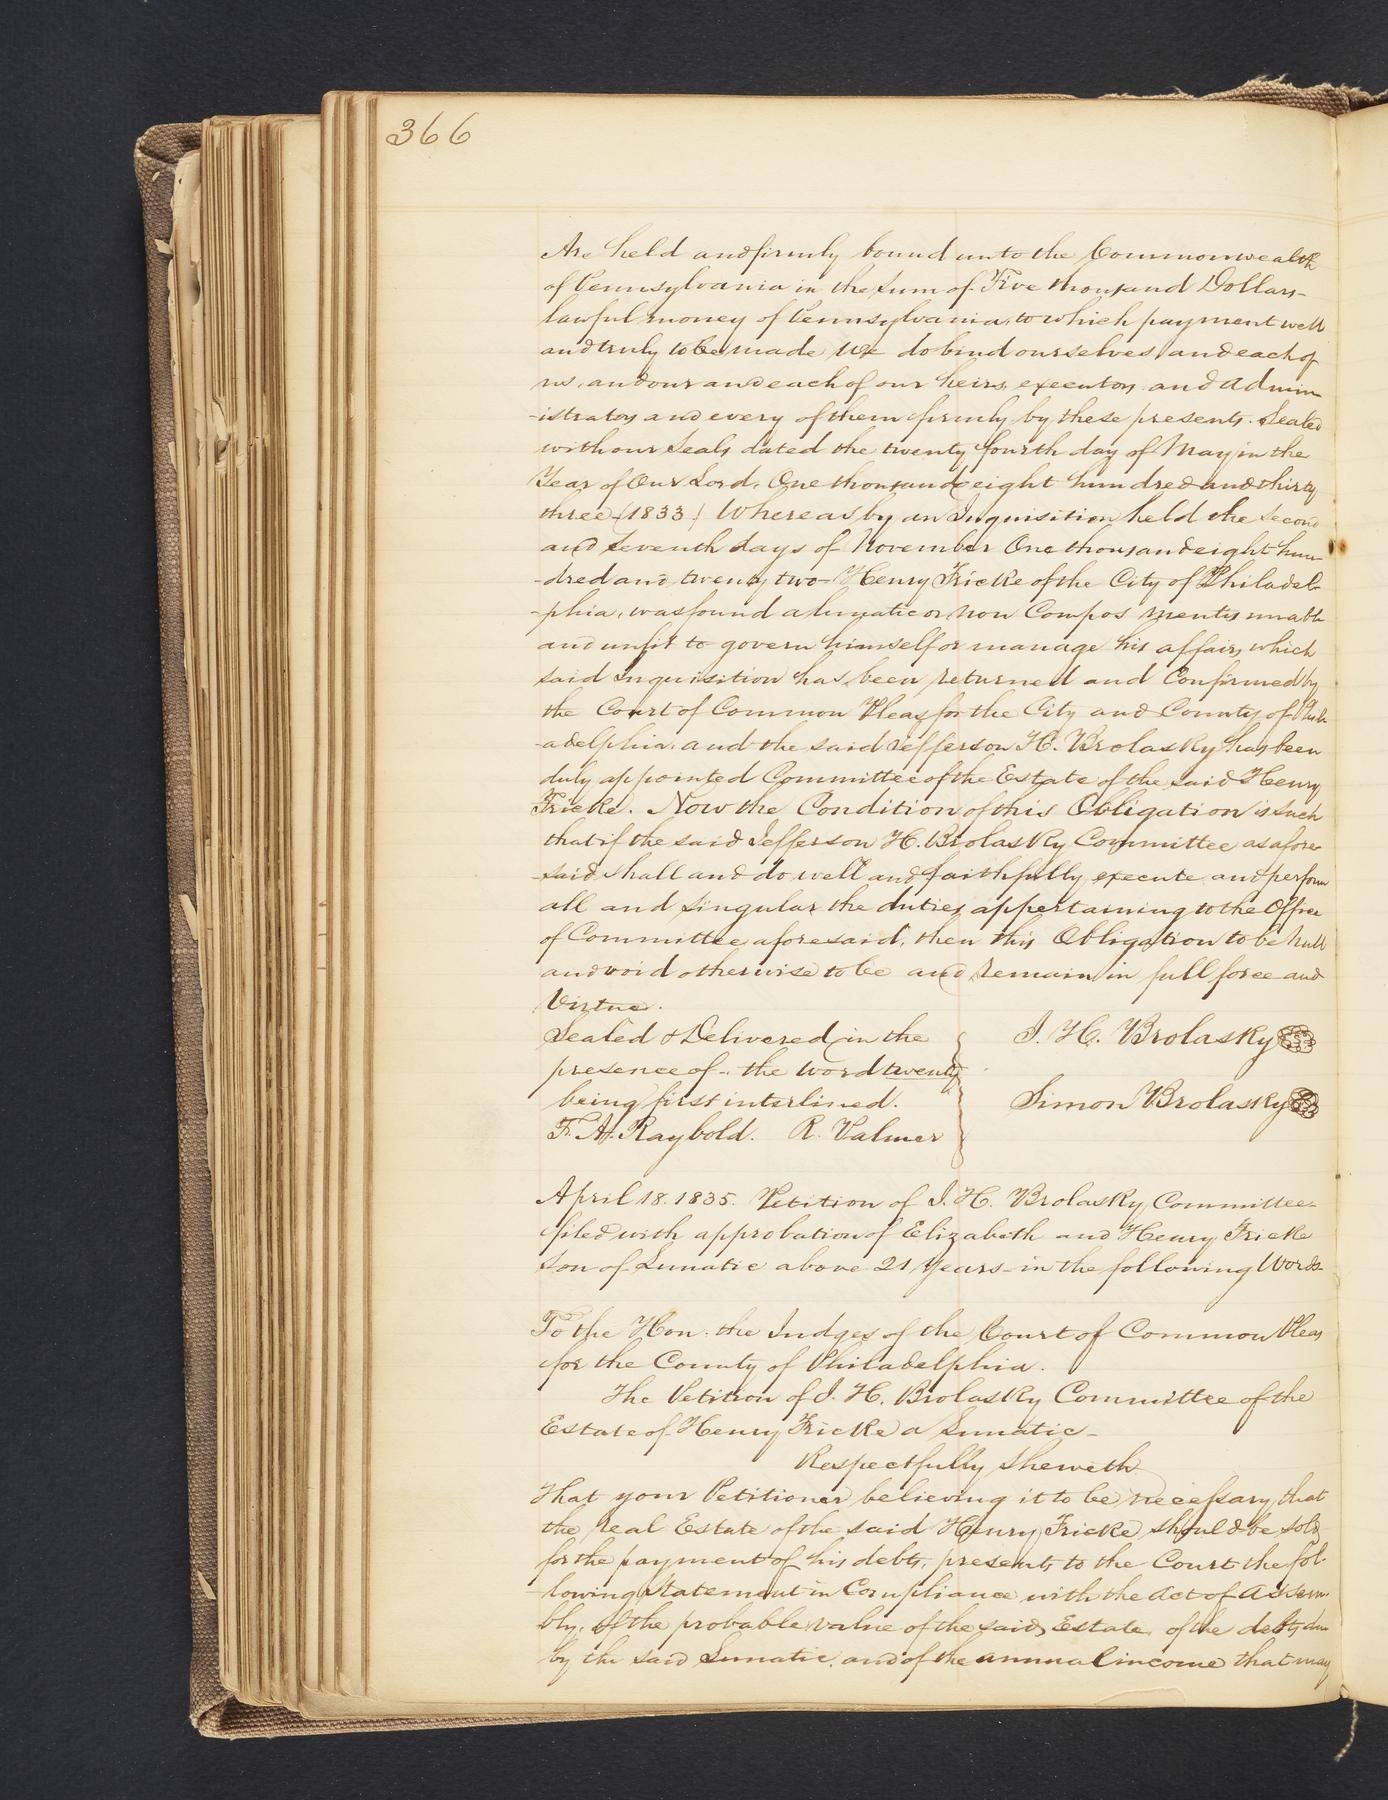 366
Are held and firmly bound unto the Commonwealth
of Pennsylvania in the sum of Five thousand Dollars-
lawful money of Pennsylvania, to which payment well
and truly to be made we do bind ourselves, and each of
us, and our and each of our heirs, executors and admin
-istrators and every of them firmly by these presents. Sealed
with our Seals dated the twenty fourth day of May in the
Year of Our Lord, One thousand eight hundred and thirty
three (1833) Whereas by an Inquisition held the second
and seventh days of November One thousand eight hun-
-dred and twenty two- Henry Fricke of the City of Philadel-
-phia, was found a lunatic or non Compos mentis unable
and unfit to govern himself or manage his affairs, which
said Inquisition has been returned and Confirmed by
the Court of Common Pleas for the City and County of Phil
-adelphia, and the said Jefferson H. Brolasky has been
duly appointed Committee of the Estate of the said Henry
Fricke. Now the Condition of this Obligation is such
that if the said Jefferson H. Brolasky Committee as afore
-said shall and do well and faithfully execute and perform
all and singular the duties appertaining to the Office
of Committee aforesaid, then this Obligation to be Null
and void otherwise to be and remain in full force and
Virtue.
Sealed & Delivered in the
presence of - the word twenty
being first interlined.
F. A. Raybold. R. Palmer
J. H. Brolasky
Simon Brolasky
April 18. 1835. Petition of J. H. Brolasky Committee-
filed with approbation of Elizabeth and Henry Fricke
Son of Lunatic above 21 Years- in the following Words-
To the Hon. the Judges of the Court of Common Pleas
for the County of Philadelphia.
The Petition of J. H. Brolasky Committee of the
Estate of Henry Fricke a Lunatic-
Respectfully Sheweth
That your Petitioner believing it to be necessary that
the real Estate of the said Henry Fricke should be sold
for the payment of his debts, presents to the Court the fol-
lowing Statement in Compliance with the Act of Assem
bly, of the probable value of the said Estate, of the debts due
by the said Lunatic, and of the annual income that may